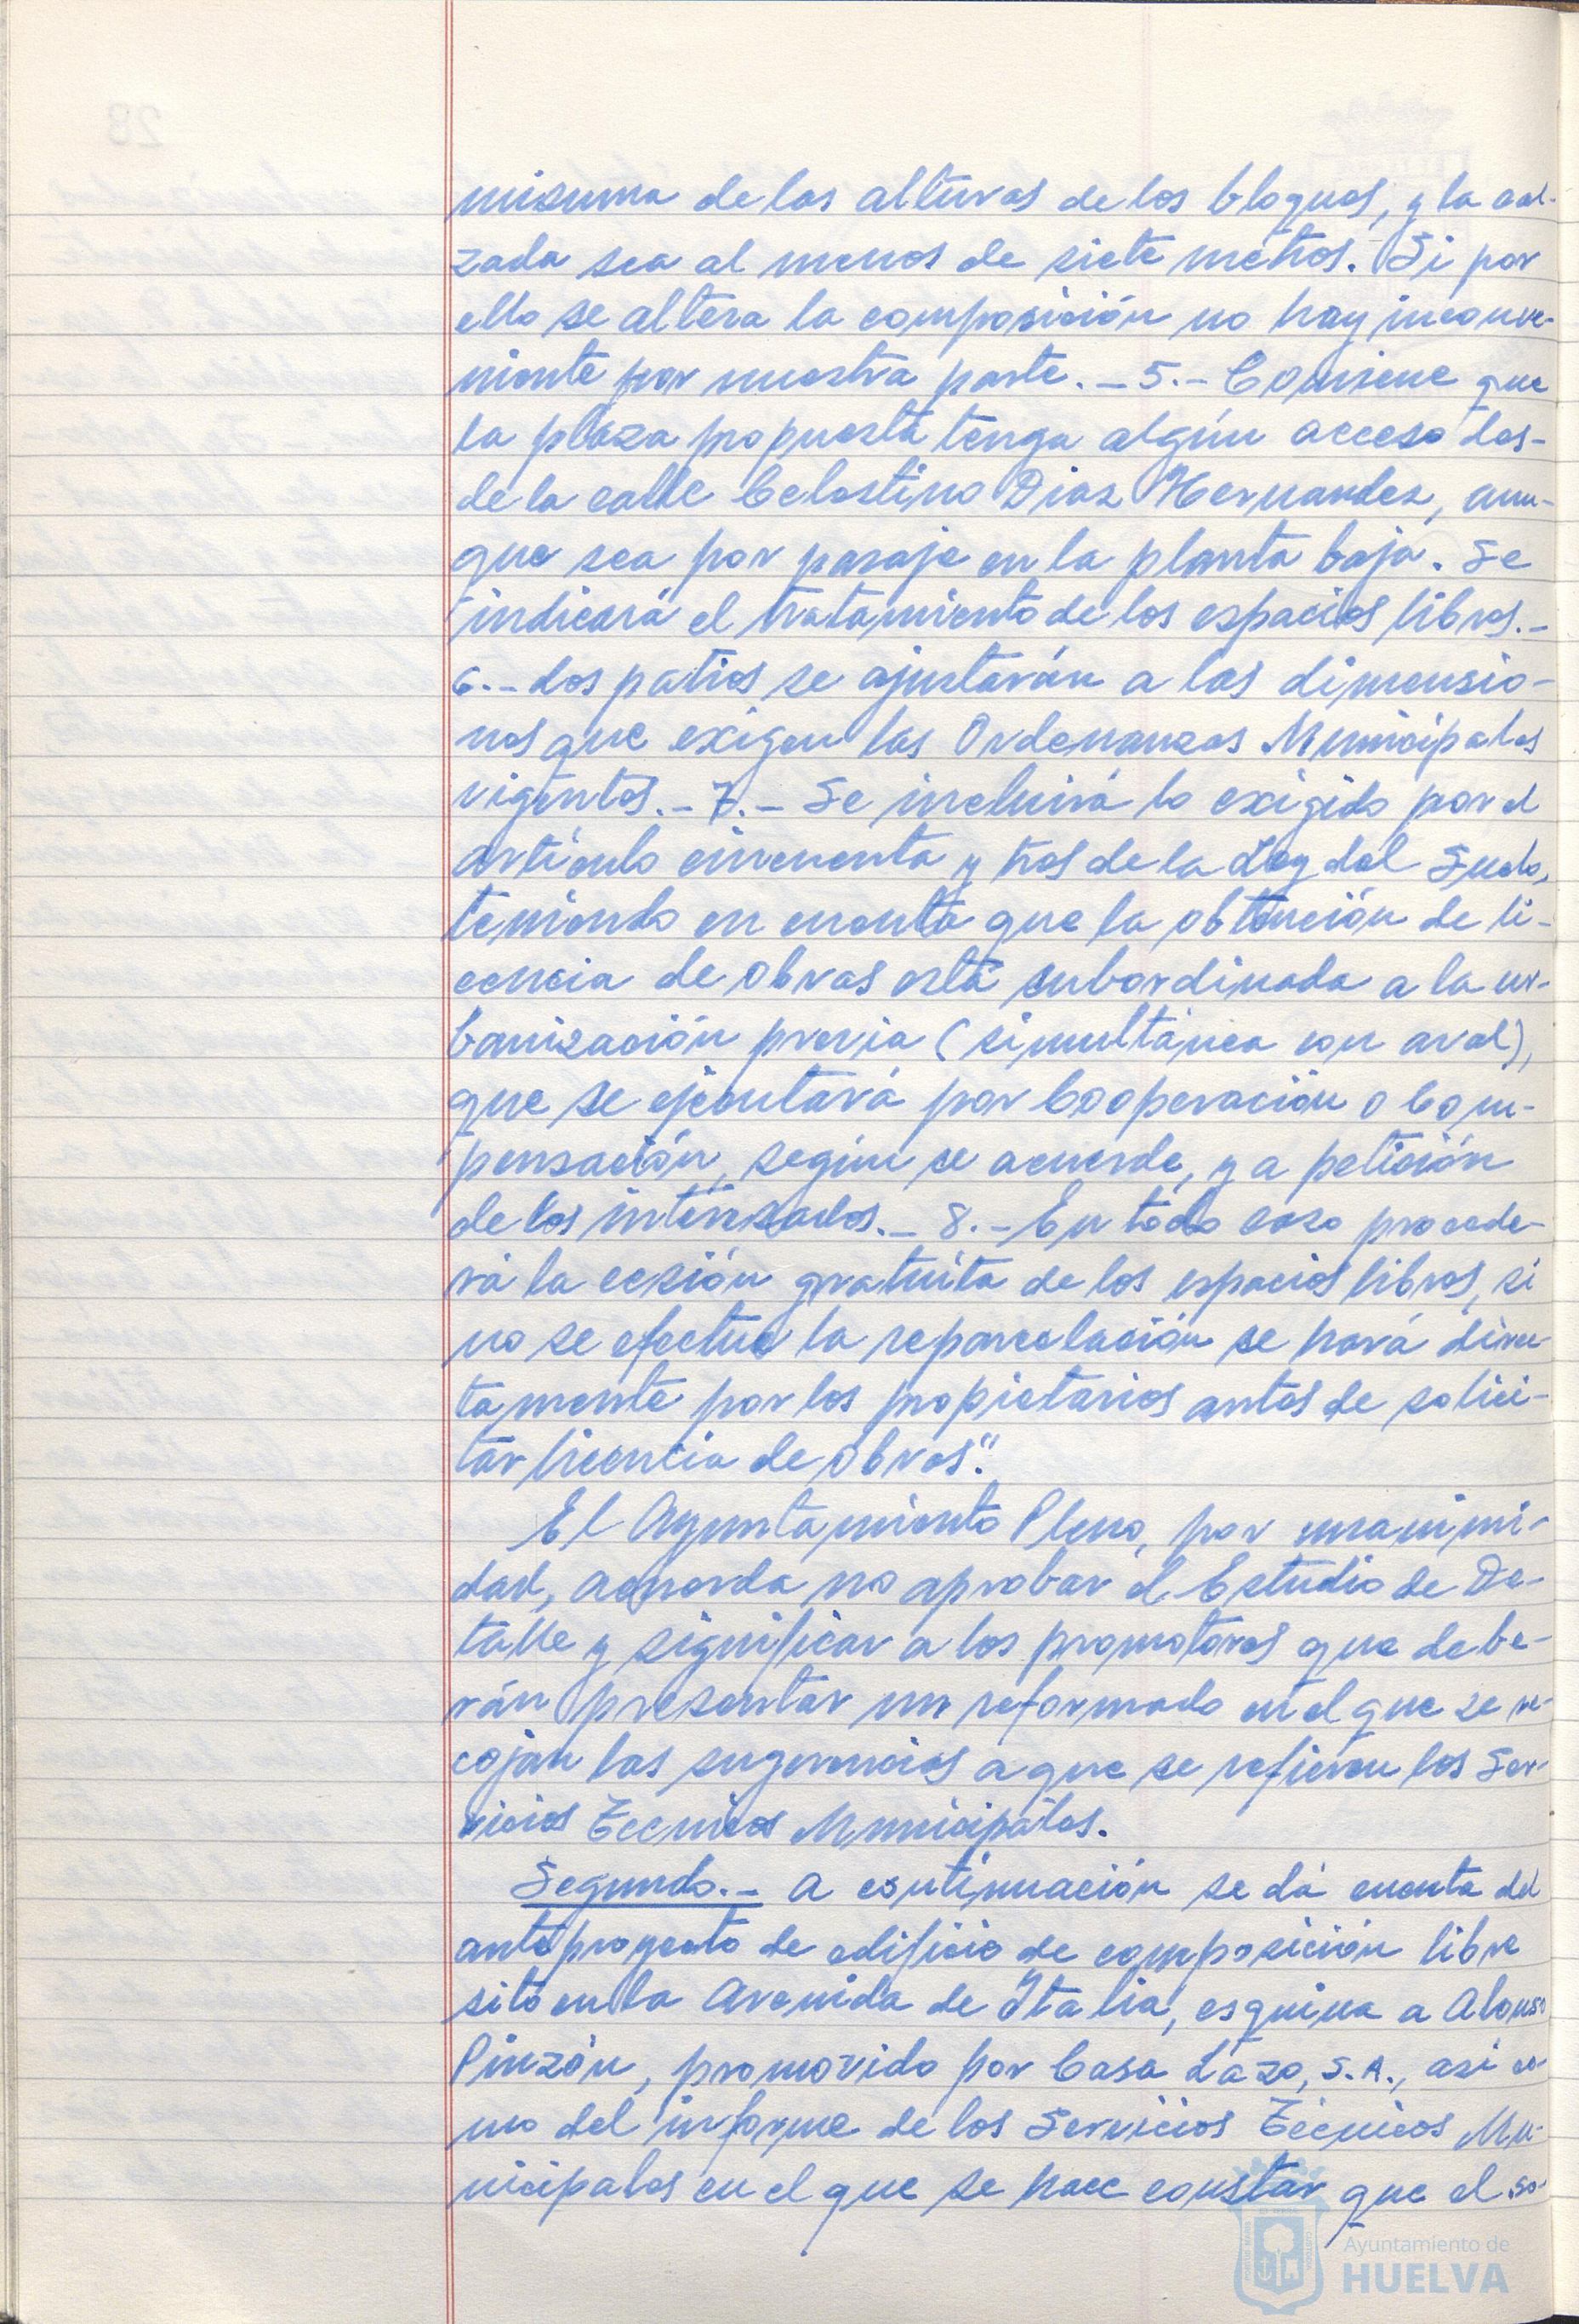 misuma de las alturas de los bloques, y la cal-
zada sea al menos de siete metros. Si por
ello se altera la composición no hay inconve-
niente por nuestra parte. - 5. - Conviene que
la plaza propuesta tenga algún acceso des-
de la calle Celestino Díaz Hernandez, aun-
que sea por pasaje en la planta baja. Se
indicará el tratamiento de los espacios libres. -
6. - Los patios se ajustarán a las dimensio-
nes que exigen las Ordenanzas Municipales
vigentes. - 7. - Se incluirá lo exigido por el
artículo cincuenta y tres de la Ley del Suelo,
teniendo en cuenta que la obtención de li-
cencia de obras está subordinada a la ur-
banización previa (simultánea con aval),
que se ejecutará por Cooperación o Com-
pensación, según se acuerde, y a petición
de los interesados. - 8. - En todo caso procede-
rá la cesión gratuita de los espacios libres, si
no se efectúa la reparcelación se hará direc-
tamente por los propietarios antes de solici-
tar licencia de obras".
El Ayuntamiento Pleno, por unanimi-
dad, acuerda no aprobar el Estudio de De-
talle y significar a los promotores que debe-
rán presentar un reformado en el que se re-
cojan las sugerencias a que se refieren los Ser-
vicios Tecnicos Municipales.
Segundo. - A continuación se dá cuenta del
anteproyecto de edificio de composición libre
sito en la Avenida de Italia, esquina a Alonso
Pinzón, promovido por Casa Lazo, S.A., asi co-
mo del informe de los Servicios Técnicos Mu-
nicipales en el que se hace constar que el so-
Ayuntamiento de
HUELVA